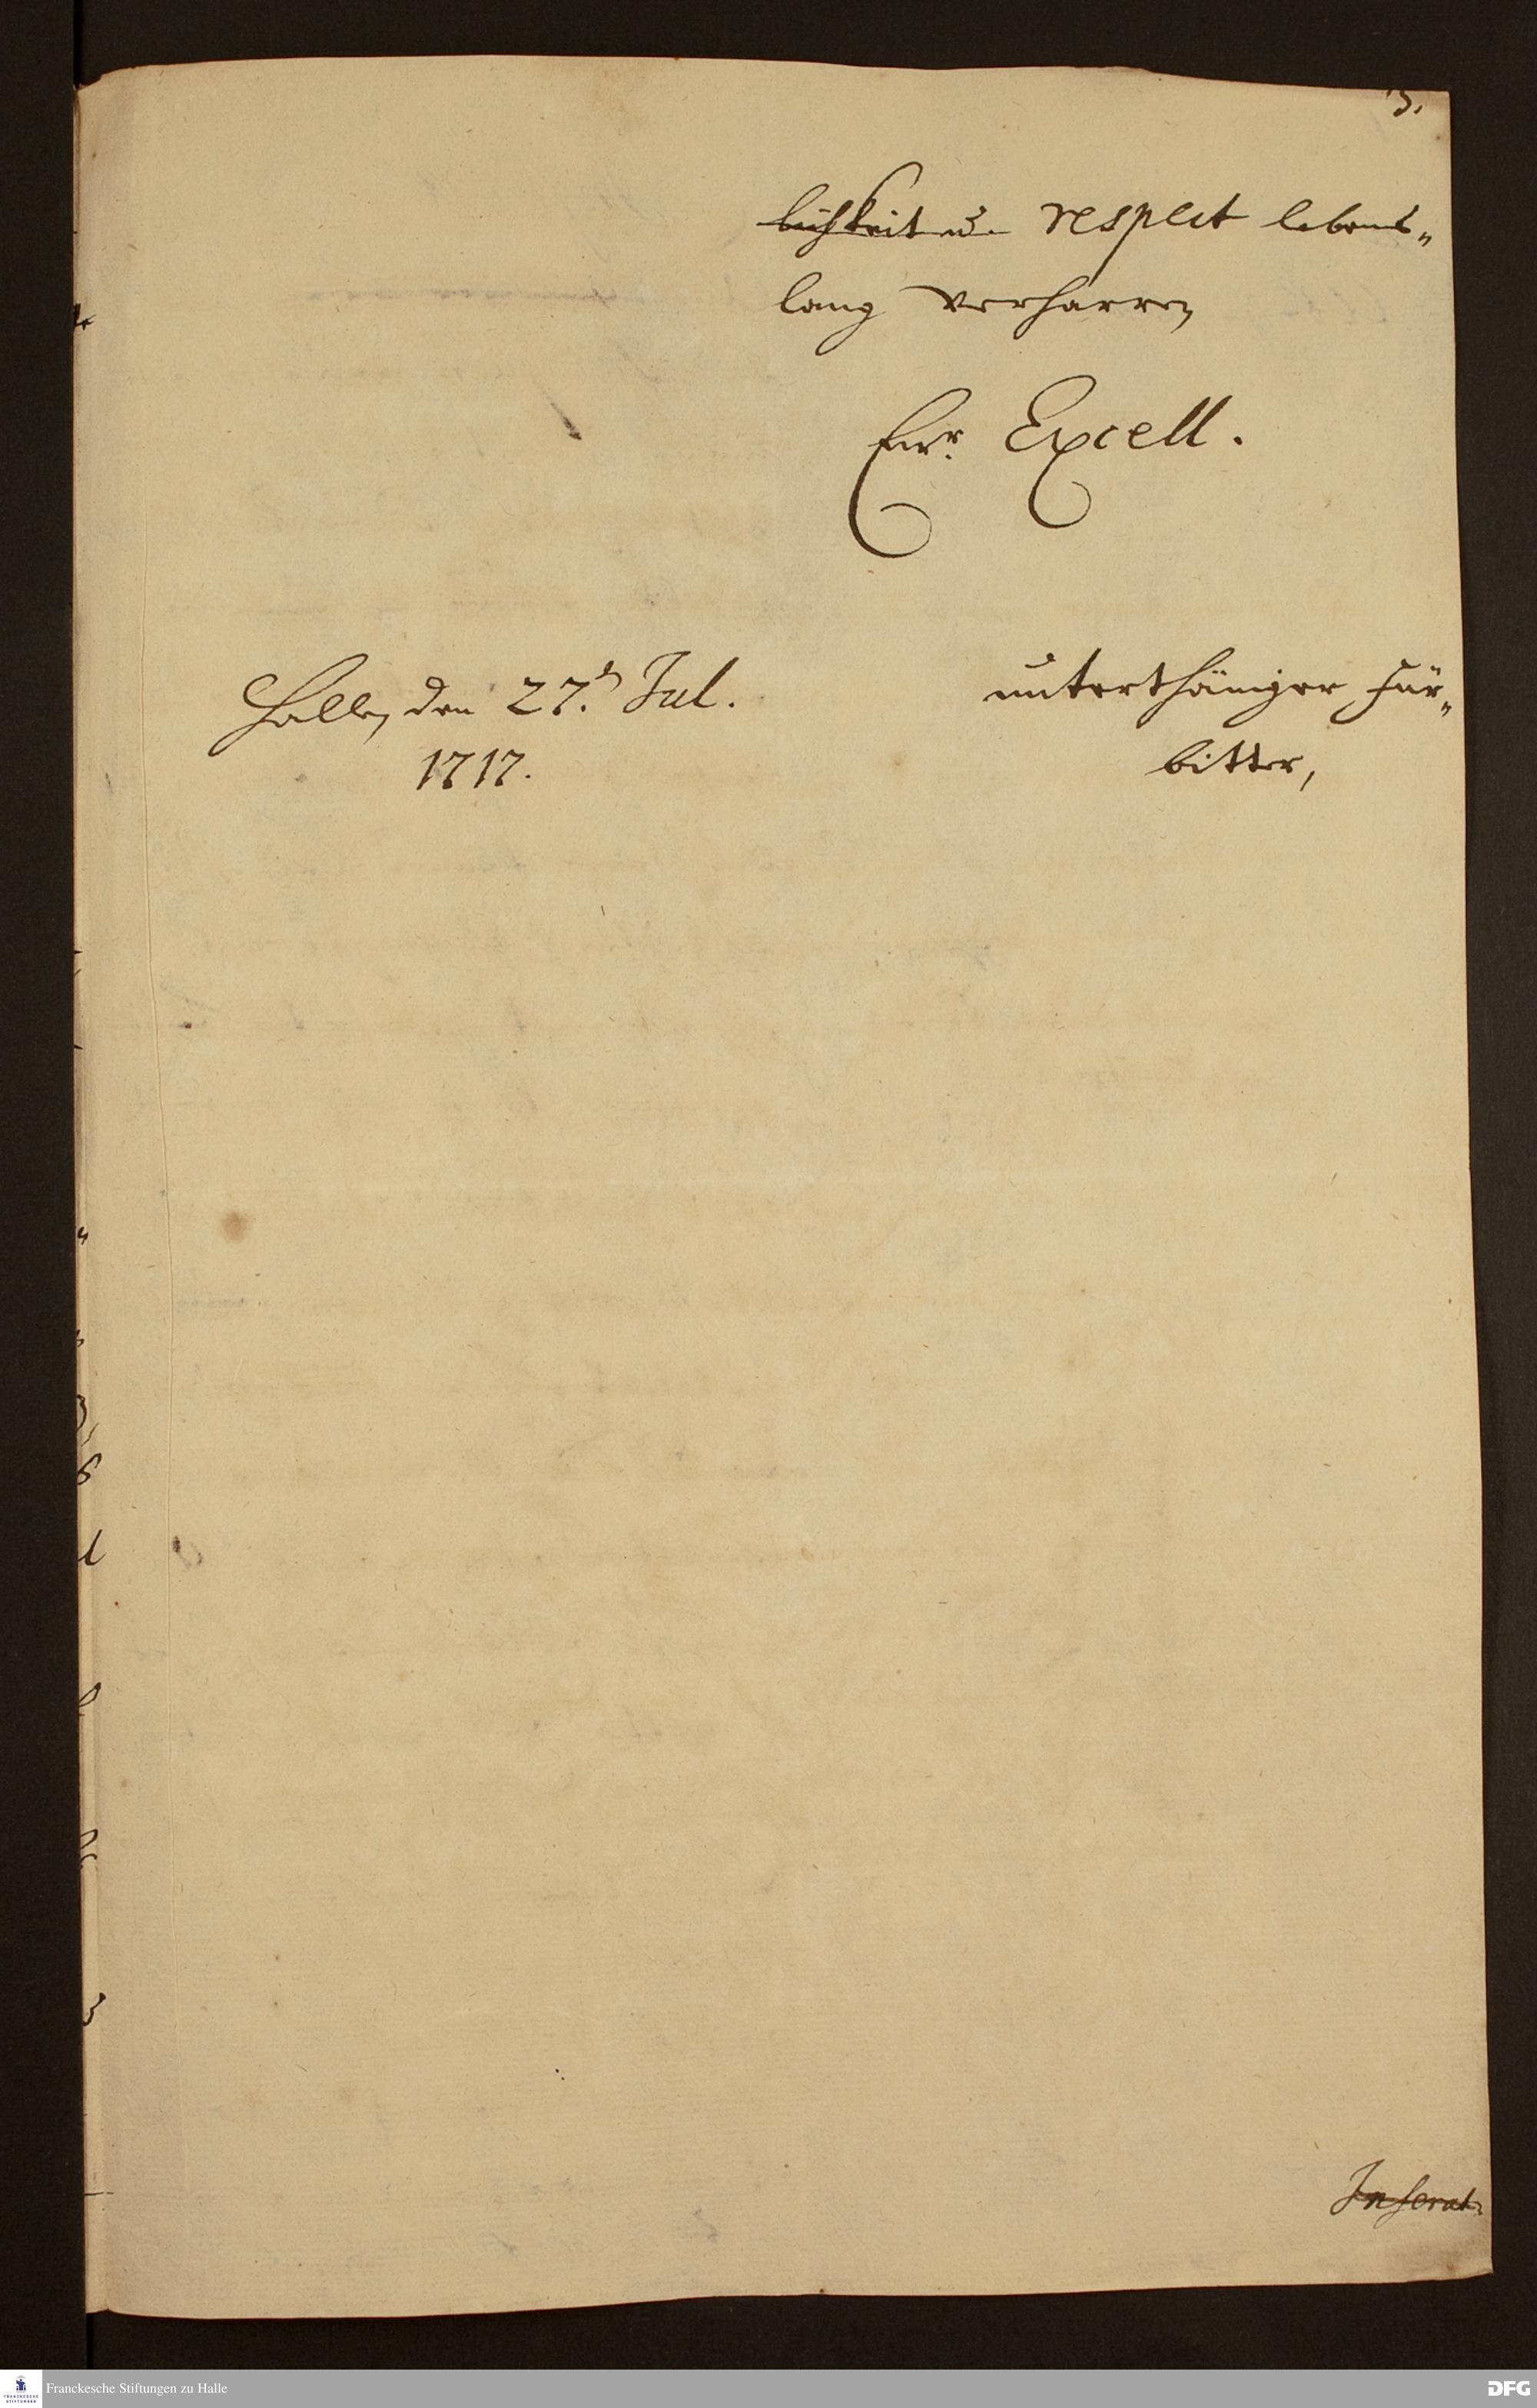 3.
lichkeit u. respect lebens„
lang verharren
Ewr. Excell.
Halle, den 27.ⁿ Jul.
1717.
unterthäniger Für„
bitter,
Inserat.
Franckesche Stiftungen zu Halle
DFG